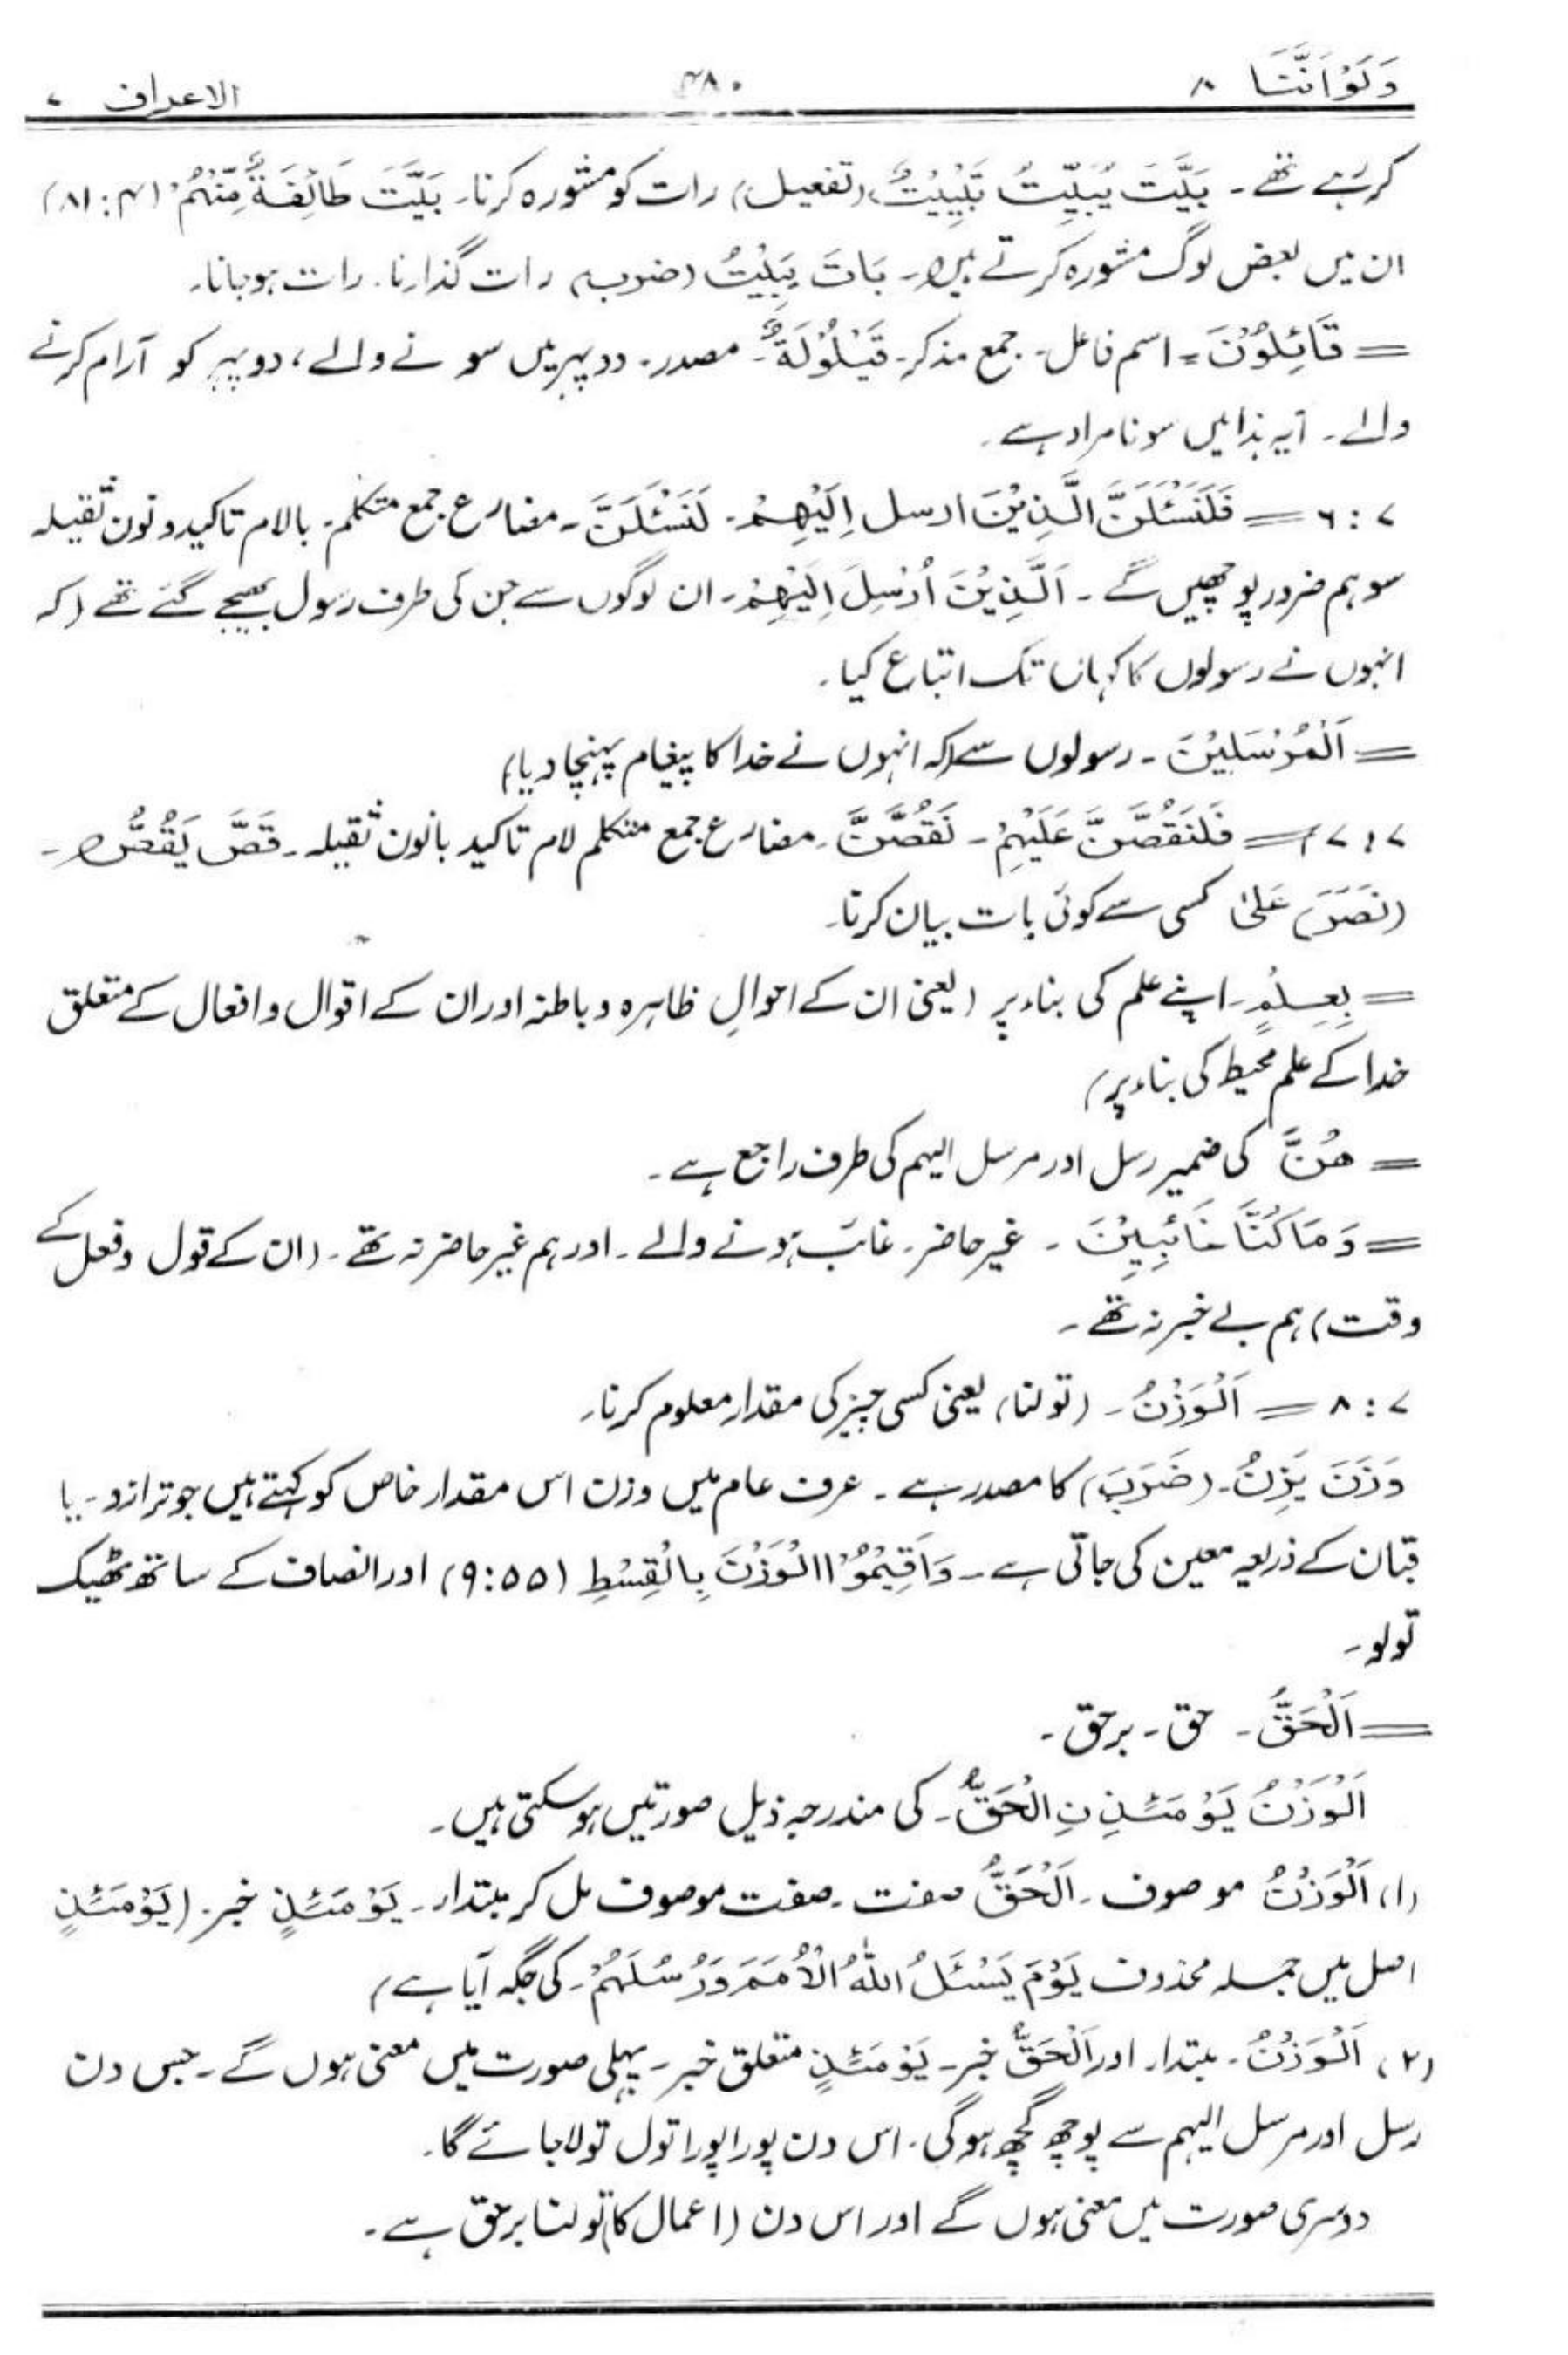 وَلَوْاَنَّنَا ۸ ۴۸۰ الاعراف ۷
کرہے تھے ۔ بَیَّتَ یُبَیِّتُ تَبْیِیْتٌ (تفعیل) رات کو مشورہ کرنا۔ بَیَّتَ طَائِفَۃٌ مِّنْہُمْ (۴ : ۸۱)
ان میں بعض لوگ مشورہ کرتے ہیں۔ بَاتَ یَبِیْتُ (ضرب) رات گذارنا۔ رات ہو جانا۔
= قَائِلُوْنَ = اسم فاعل۔ جمع مذکر۔ قَیْلُوْلَۃٌ ۔ مصدر۔ دوپہر میں سونے والے، دوپہر کو آرام کرنے
والے ۔ آیہ ہذا میں سونا مراد ہے ۔
۷ : ۶ = فَلَنَسْئَلَنَّ الَّذِیْنَ ارسل اِلَیْہِمْ ۔ لَنَسْئَلَنَّ ۔ مضارع جمع متکلم۔ بالام تاکید و نون ثقیلہ
سو ہم ضرور پوچھیں گے ۔ اَلَّذِیْنَ اُرْسِلَ اِلَیْہِمْ ۔ ان لوگوں سے جن کی طرف رسول بھیجے گئے تھے (کہ
انہوں نے رسولوں کا کہاں تک اتباع کیا ۔
= اَلْمُرْسَلِیْنَ ۔ رسولوں سے (کہ انہوں نے خدا کا پیغام پہنچا دیا)
۷ : ۷ = فَلَنَقُصَّنَّ عَلَیْہِمْ ۔ نَقُصَّنَّ ۔ مضارع جمع متکلم لام تاکید بانون ثقیلہ ۔ قَصَّ یَقُصُّ ۔
(نَصَرَ) عَلیٰ کسی سے کوئی بات بیان کرنا۔
= بِعِلْمٍ ۔ اپنے علم کی بناء پر (یعنی ان کے احوالِ ظاہرہ و باطنہ اور ان کے اقوال وافعال کے متعلق
خدا کے علم محیط کی بناء پر)
= ھُنَّ کی ضمیر رسل اور مرسل الیہم کی طرف راجع ہے ۔
= وَمَا کُنَّا غَائِبِیْنَ ۔ غیر حاضر۔ غائب ہونے والے ۔ اور ہم غیر حاضر نہ تھے ۔ (ان کے قول وفعل کے
وقت) ہم بے خبر نہ تھے ۔
۷ : ۸ = اَلْوَزْنُ ۔ (تولنا) یعنی کسی چیز کی مقدار معلوم کرنا۔
وَزَنَ یَزِنُ ۔ (ضَرَبَ) کا مصدر ہے ۔ عرف عام میں وزن اس مقدار خاص کو کہتے ہیں جو ترازو ۔ یا
قبان کے ذریعہ معین کی جاتی ہے ۔ وَاَقِیْمُوْا الْوَزْنَ بِالْقِسْطِ (۵۵ : ۹) اور انصاف کے ساتھ ٹھیک
تولو ۔
= اَلْحَقُّ ۔ حق ۔ برحق ۔
اَلْوَزْنُ یَوْمَئِذِ نِ الْحَقُّ ۔ کی مندرجہ ذیل صورتیں ہو سکتی ہیں ۔
(۱) اَلْوَزْنُ موصوف ۔ اَلْحَقُّ صفت ۔ صفت موصوف مل کر مبتدار ۔ یَوْمَئِذٍ خبر۔ (یَوْمَئِذٍ
اصل میں جملہ محذوف یَوْمَ یَسْئَلُ اللّٰہُ الْاُمَمَ وَرُسُلَہُمْ ۔ کی جگہ آیا ہے)
(۲) اَلْوَزْنُ ۔ مبتدار۔ اور اَلْحَقُّ خبر ۔ یَوْمَئِذٍ متعلق خبر ۔ پہلی صورت میں معنی ہوں گے ۔ جس دن
رسل اور مرسل الیہم سے پوچھ گچھ ہوگی ۔ اس دن پورا پورا تول تولا جائے گا ۔
دوسری صورت میں معنی ہوں گے اور اس دن (اعمال کا) تولنا برحق ہے ۔